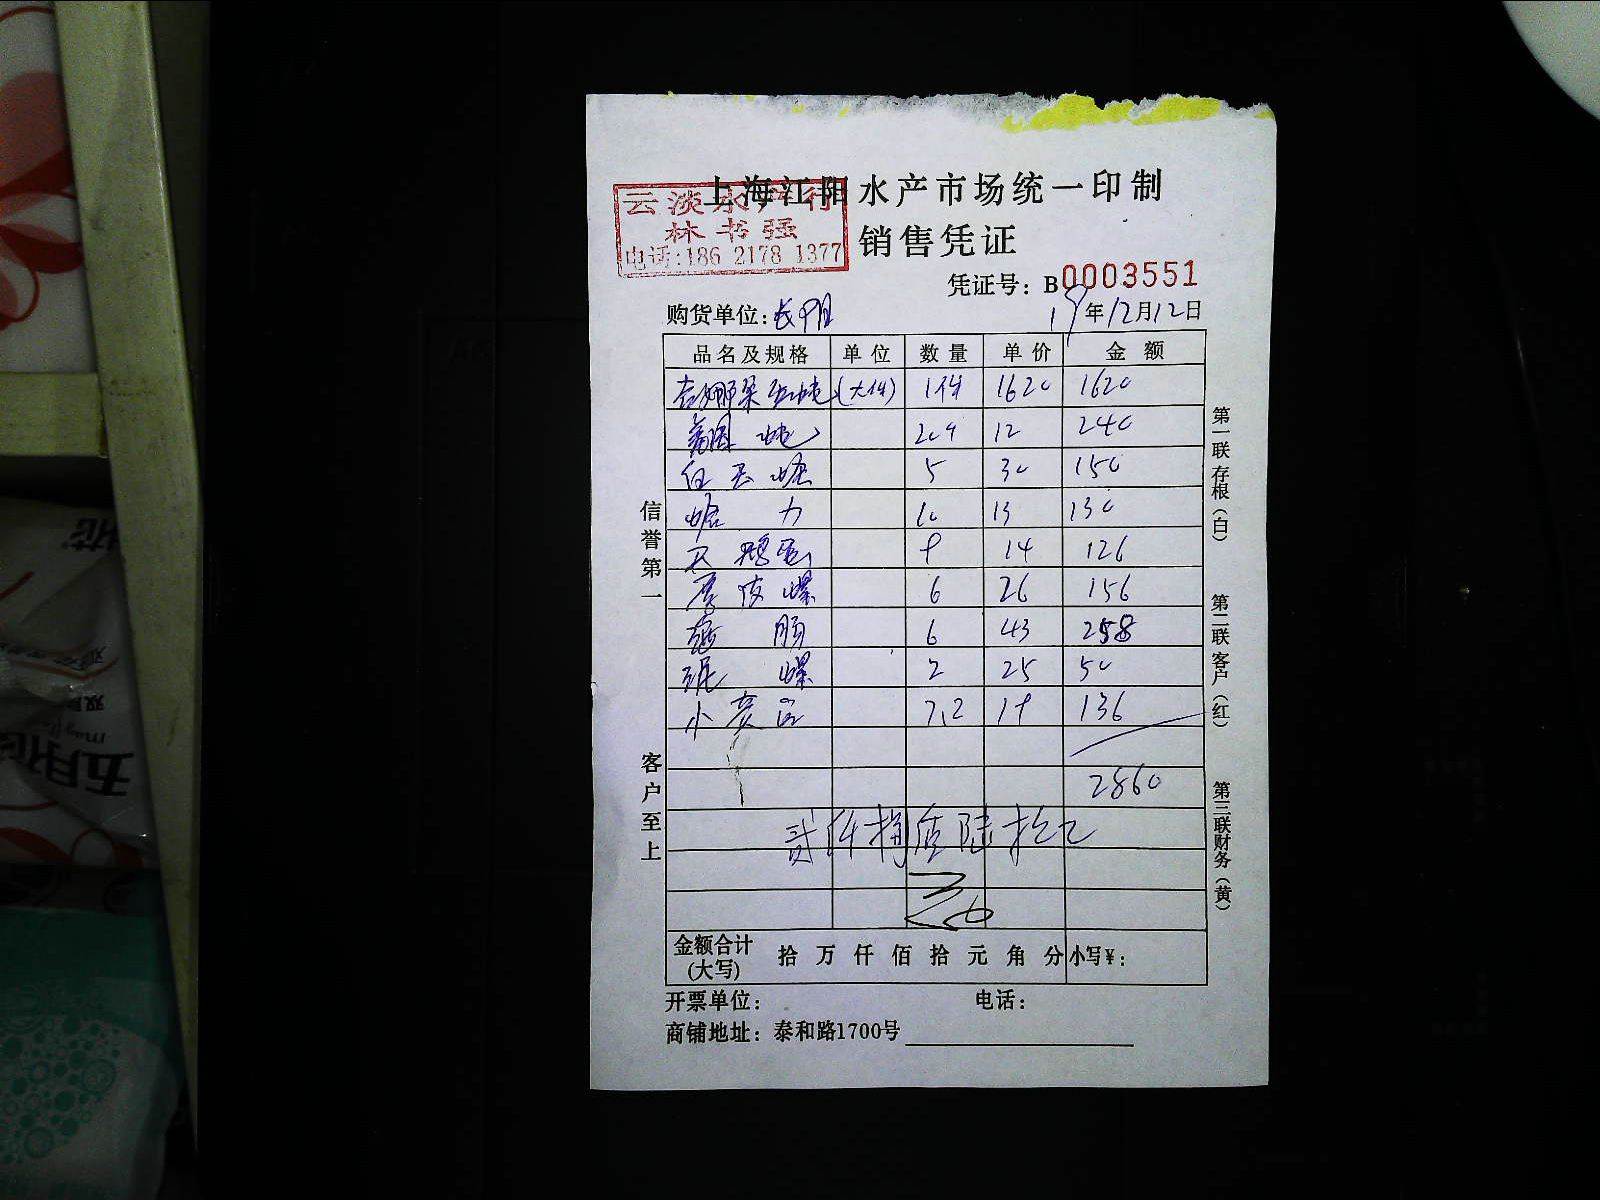 上海江阳水产市场统一印制
云淡水产行
林书强
电话:186 2178 1377
销售凭证
凭证号: B0003551
购货单位: 长阳 19年12月12日
品名及规格 单位 数量 单价 金额
(大件) 1件 1620 1620
12 240
5 30 150
蛤 力 10 13 130
天鹅蛋 9 14 126
皮螺 6 26 156
6 43 258
泥 螺 2 25 50
小 7.2 19 136
2860
贰仟捌佰陆拾元
金额合计(大写) 拾 万 仟 佰 拾 元 角 分 小写¥:
开票单位: 电话:
商铺地址: 泰和路1700号
信誉第一
客户至上
第一联存根(白)
第二联客户(红)
第三联财务(黄)
五月花